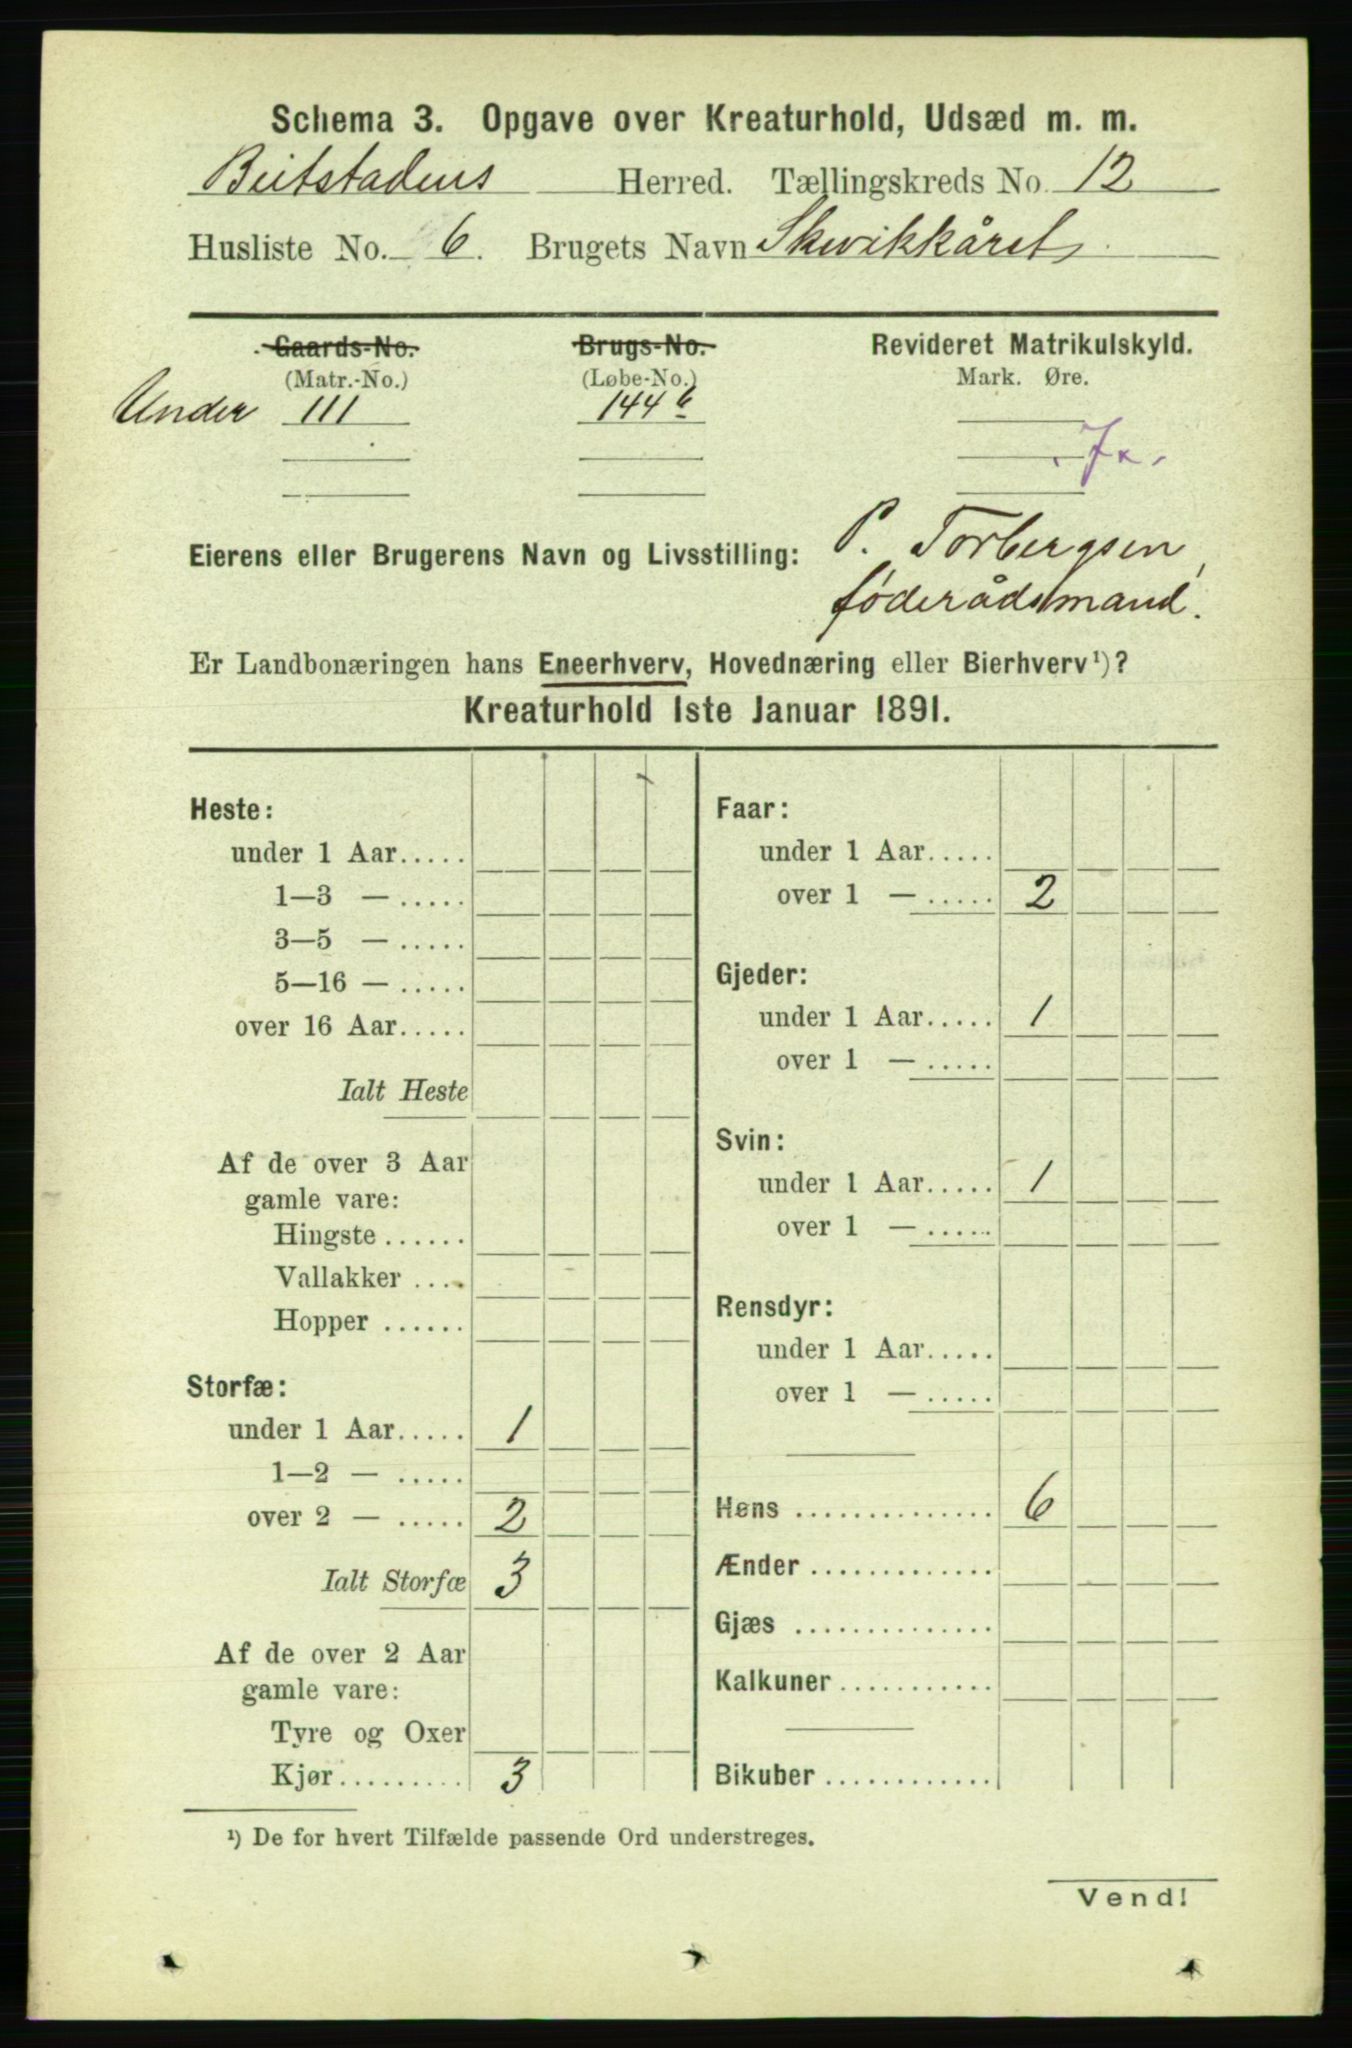 Schema 3. Opgave over Kreaturhold, Udsæd m. m.
Beitstadens Herred. Tællingskreds No. 12
Husliste No. 6. Brugets Navn Skevikkåret.
Gaards-No. Brugs-No. Revideret Matrikulskyld.
(Matr.-No.) (Løbe-No.) Mark. Øre.
Under 111 144 6
Eierens eller Brugerens Navn og Livsstilling: P. Torbergsen,
føderådsmand.
Er Landbonæringen hans Eneerhverv, Hovednæring eller Bierhverv¹)?
Kreaturhold 1ste Januar 1891.
Heste:
under 1 Aar.....
1—3 — .....
3—5 — .....
5—16 — .....
over 16 Aar.....
Ialt Heste
Af de over 3 Aar
gamle vare:
Hingste ......
Vallakker ....
Hopper ......
Storfæ:
under 1 Aar..... 1
1—2 — .....
over 2 — ..... 2
Ialt Storfæ 3
Af de over 2 Aar
gamle vare:
Tyre og Oxer
Kjør......... 3
Faar:
under 1 Aar.....
over 1 — ..... 2
Gjeder:
under 1 Aar..... 1
over 1 — .....
Svin:
under 1 Aar..... 1
over 1 — .....
Rensdyr:
under 1 Aar.....
over 1 — .....
Høns .............. 6
Ænder .............
Gjæs ..............
Kalkuner ...........
Bikuber ............
¹) De for hvert Tilfælde passende Ord understreges.
Vend!